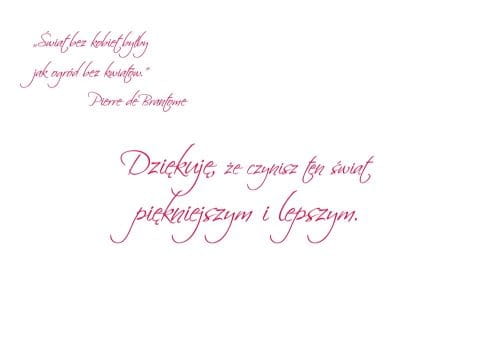 „Świat bez kobiet byłby
jak ogród bez kwiatów.”
Pierre de Brantome
Dziękuję, że czynisz ten świat
piękniejszym i lepszym.